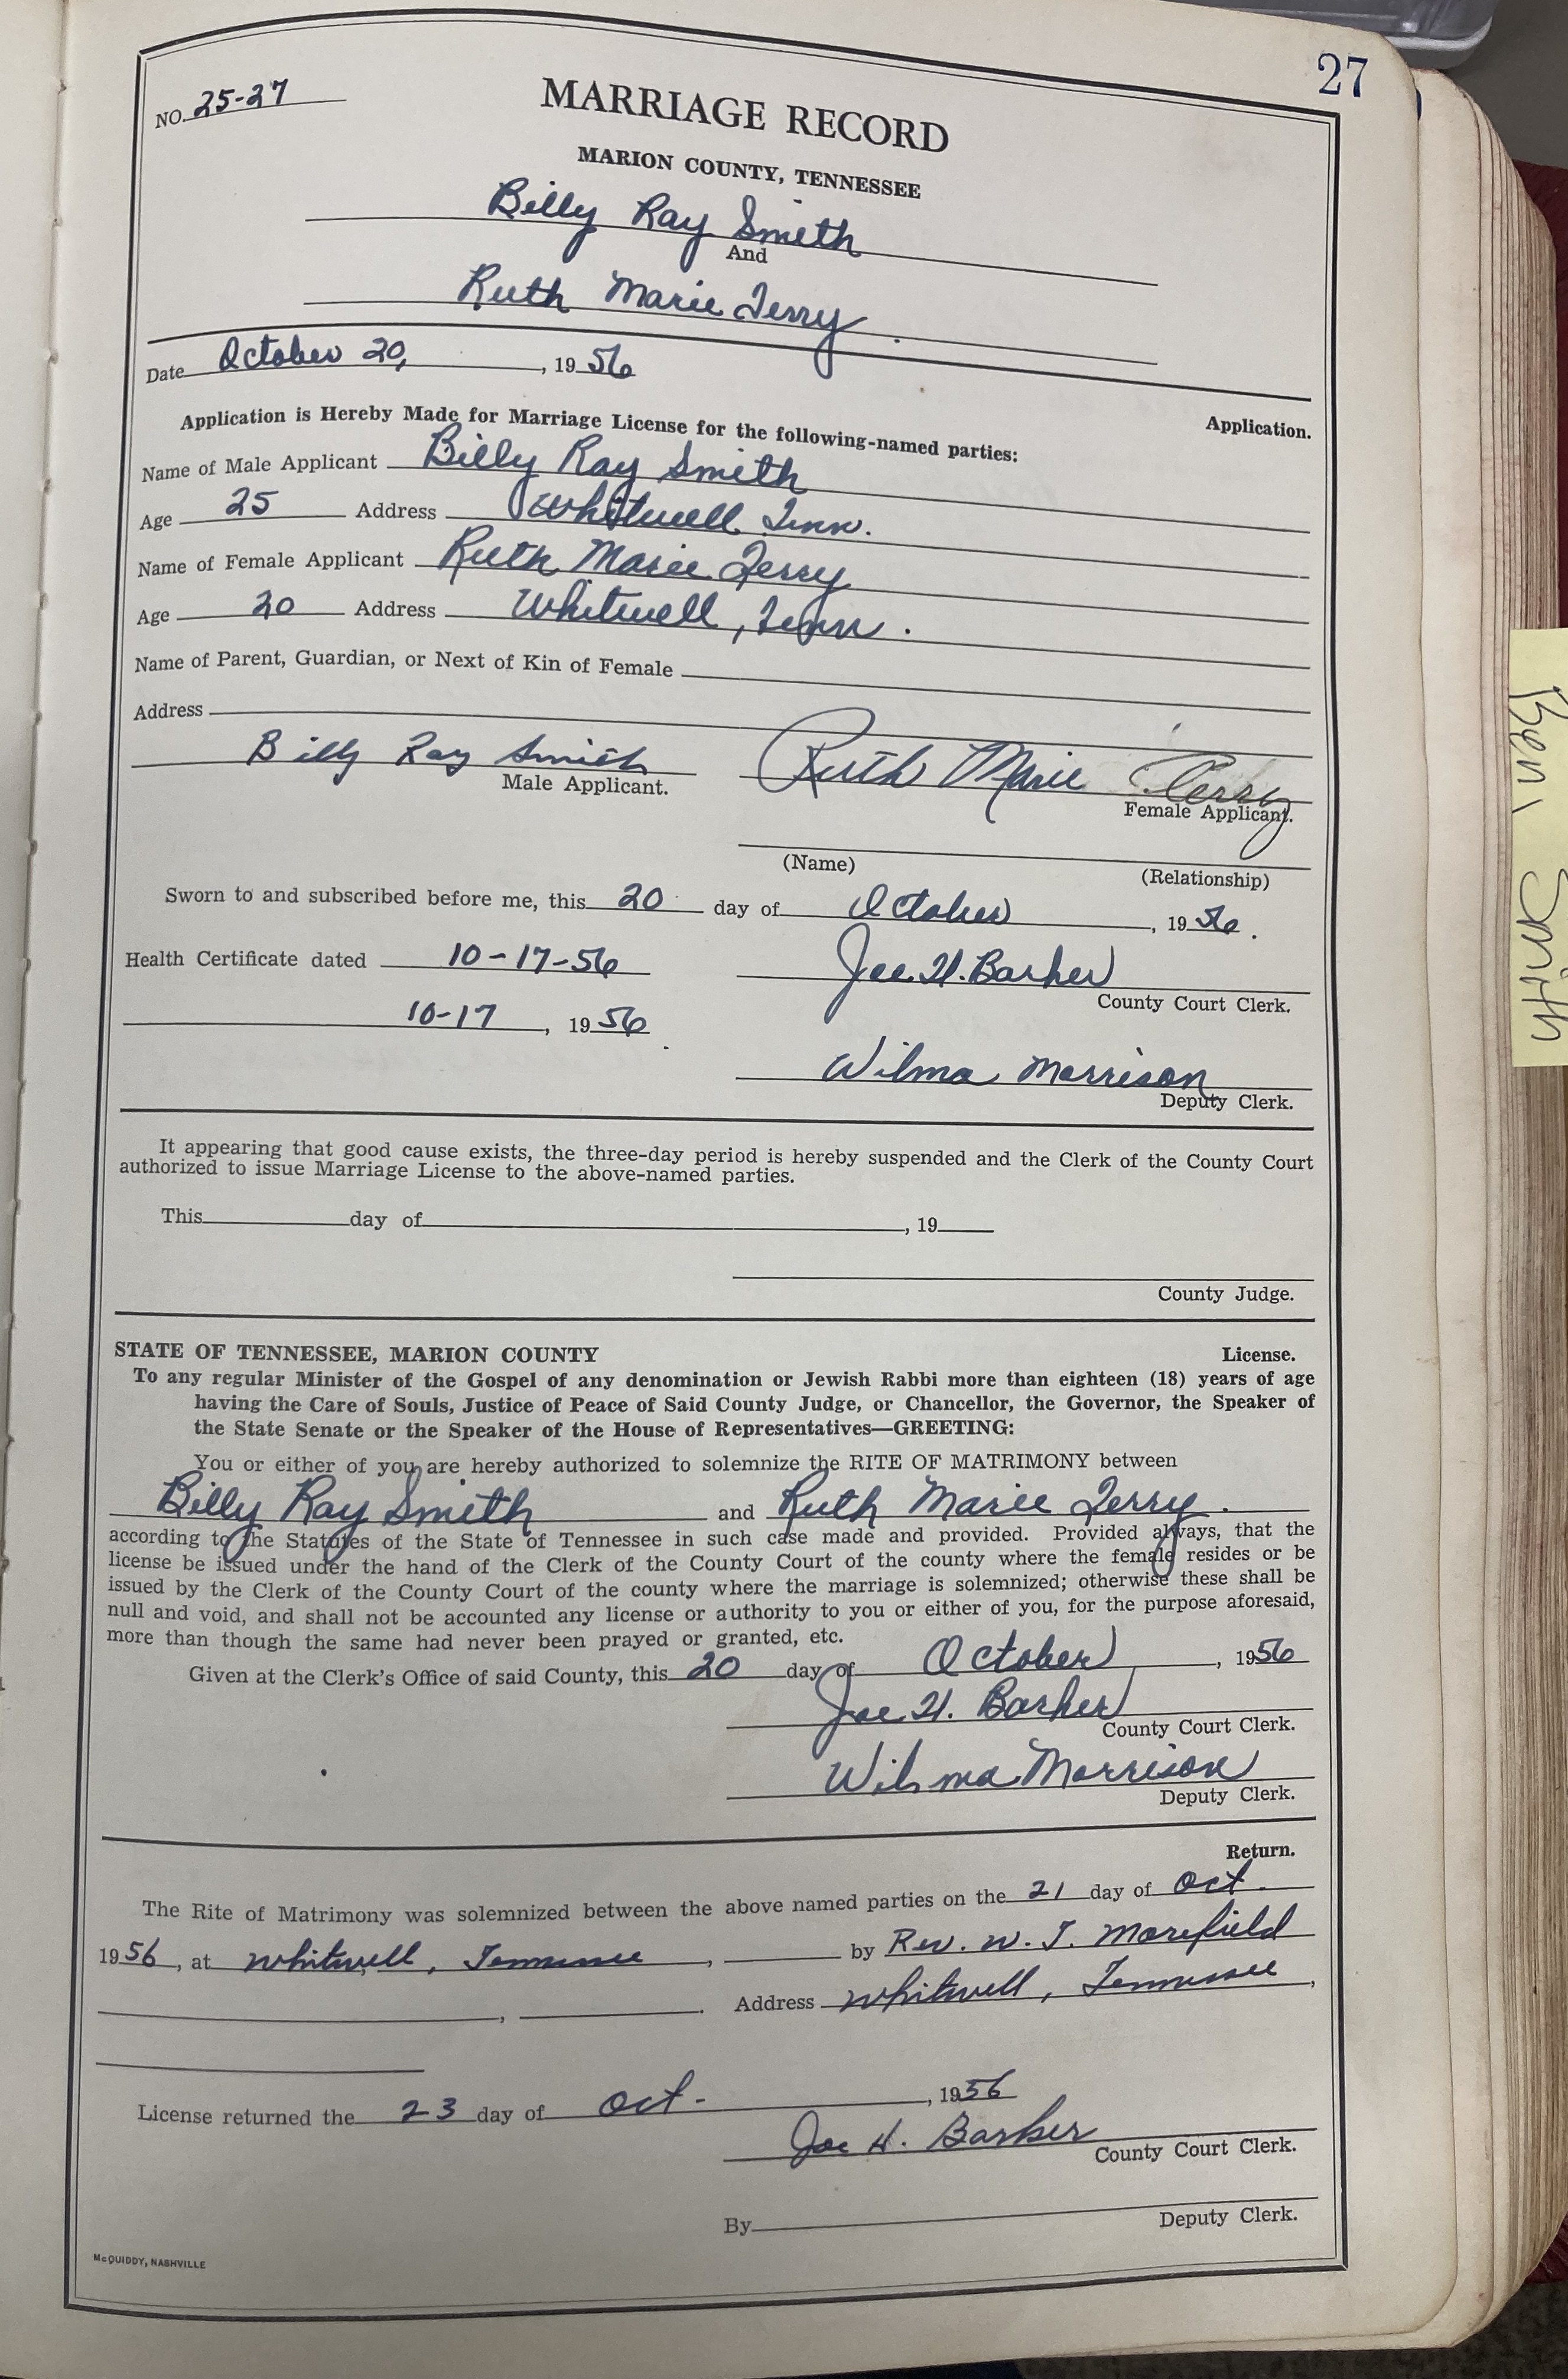 27
NO. 25-27
MARRIAGE RECORD
MARION COUNTY, TENNESSEE
Billy Ray Smith
And
Ruth Marie Terry
Date October 20, , 19 56
Application.
Application is Hereby Made for Marriage License for the following-named parties:
Name of Male Applicant Billy Ray Smith
Age 25 Address Whitwell Tenn.
Name of Female Applicant Ruth Marie Terry
Age 20 Address Whitwell, Tenn.
Name of Parent, Guardian, or Next of Kin of Female
Address
Billy Ray Smith Ruth Marie Terry
Male Applicant. Female Applicant.
(Name) (Relationship)
Sworn to and subscribed before me, this 20 day of October , 19 56.
Health Certificate dated 10-17-56 Joe H. Barker
County Court Clerk.
10-17 , 19 56
Wilma Morrison
Deputy Clerk.
It appearing that good cause exists, the three-day period is hereby suspended and the Clerk of the County Court
authorized to issue Marriage License to the above-named parties.
This day of , 19
County Judge.
STATE OF TENNESSEE, MARION COUNTY License.
To any regular Minister of the Gospel of any denomination or Jewish Rabbi more than eighteen (18) years of age
having the Care of Souls, Justice of Peace of Said County Judge, or Chancellor, the Governor, the Speaker of
the State Senate or the Speaker of the House of Representatives—GREETING:
You or either of you are hereby authorized to solemnize the RITE OF MATRIMONY between
Billy Ray Smith and Ruth Marie Terry.
according to the Statutes of the State of Tennessee in such case made and provided. Provided always, that the
license be issued under the hand of the Clerk of the County Court of the county where the female resides or be
issued by the Clerk of the County Court of the county where the marriage is solemnized; otherwise these shall be
null and void, and shall not be accounted any license or authority to you or either of you, for the purpose aforesaid,
more than though the same had never been prayed or granted, etc.
Given at the Clerk's Office of said County, this 20 day of October , 1956
Joe H. Barker
County Court Clerk.
Wilma Morrison
Deputy Clerk.
Return.
The Rite of Matrimony was solemnized between the above named parties on the 21 day of Oct.
1956, at Whitwell, Tennessee , by Rev. W. T. Morefield
, . Address Whitwell, Tennessee ,
License returned the 23 day of Oct- , 1956
Joe H. Barker
County Court Clerk.
By Deputy Clerk.
McQUIDDY, NASHVILLE
Smith